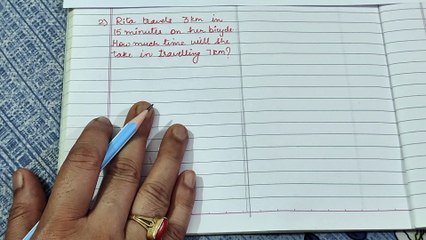 2) Rita travels 3km in
15 minutes on her bicycle
How much time will she
take in travelling 7km?